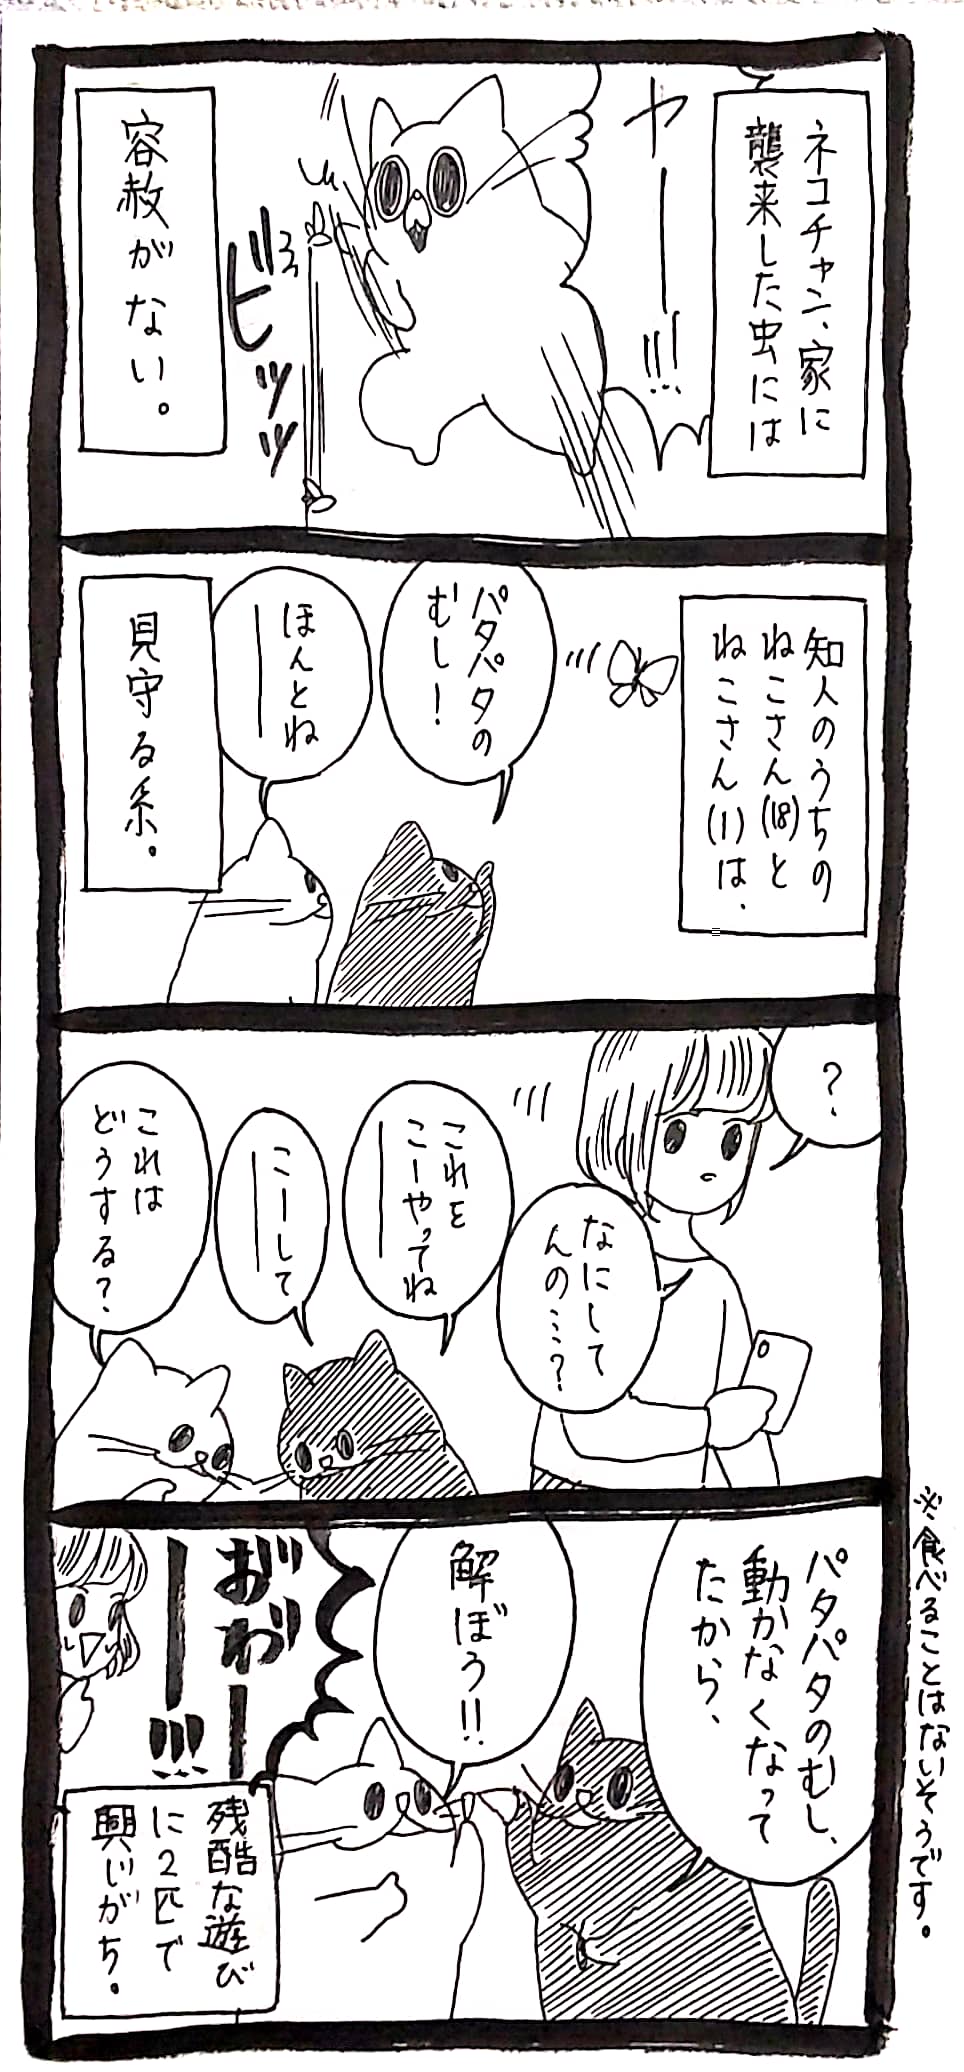 ネコチャン、家に
襲来した虫には
ヤーーー!!!…
ビッッ
容赦がない。
知人のうちの
ねこさん(18)と
ねこさん(1)は、
パタパタの
むし!
ほんとね
ーー
見守る系。
?
なにして
んの……?
これを
こーやってね
ーー
こーして
ーー
これは
どうする?
パタパタのむし、
動かなくなって
たから、
解ぼう!!
おわーー
ーー!!!
残酷な遊び
に2匹で
興じがち。
※食べることはないそうです。